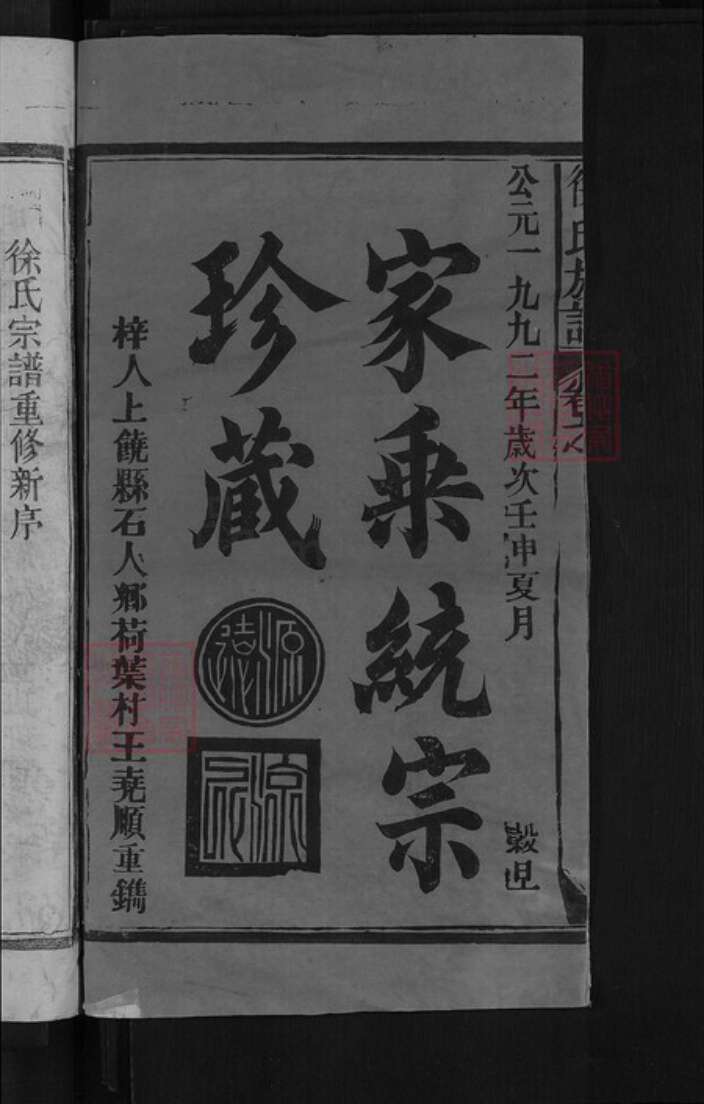 徐氏族譜
公元一九九二年歲次壬申夏月 穀旦
家乘統宗
珍藏
梓人上饒縣石人鄉荷葉村王堯順重鐫
徐氏宗譜重修新序